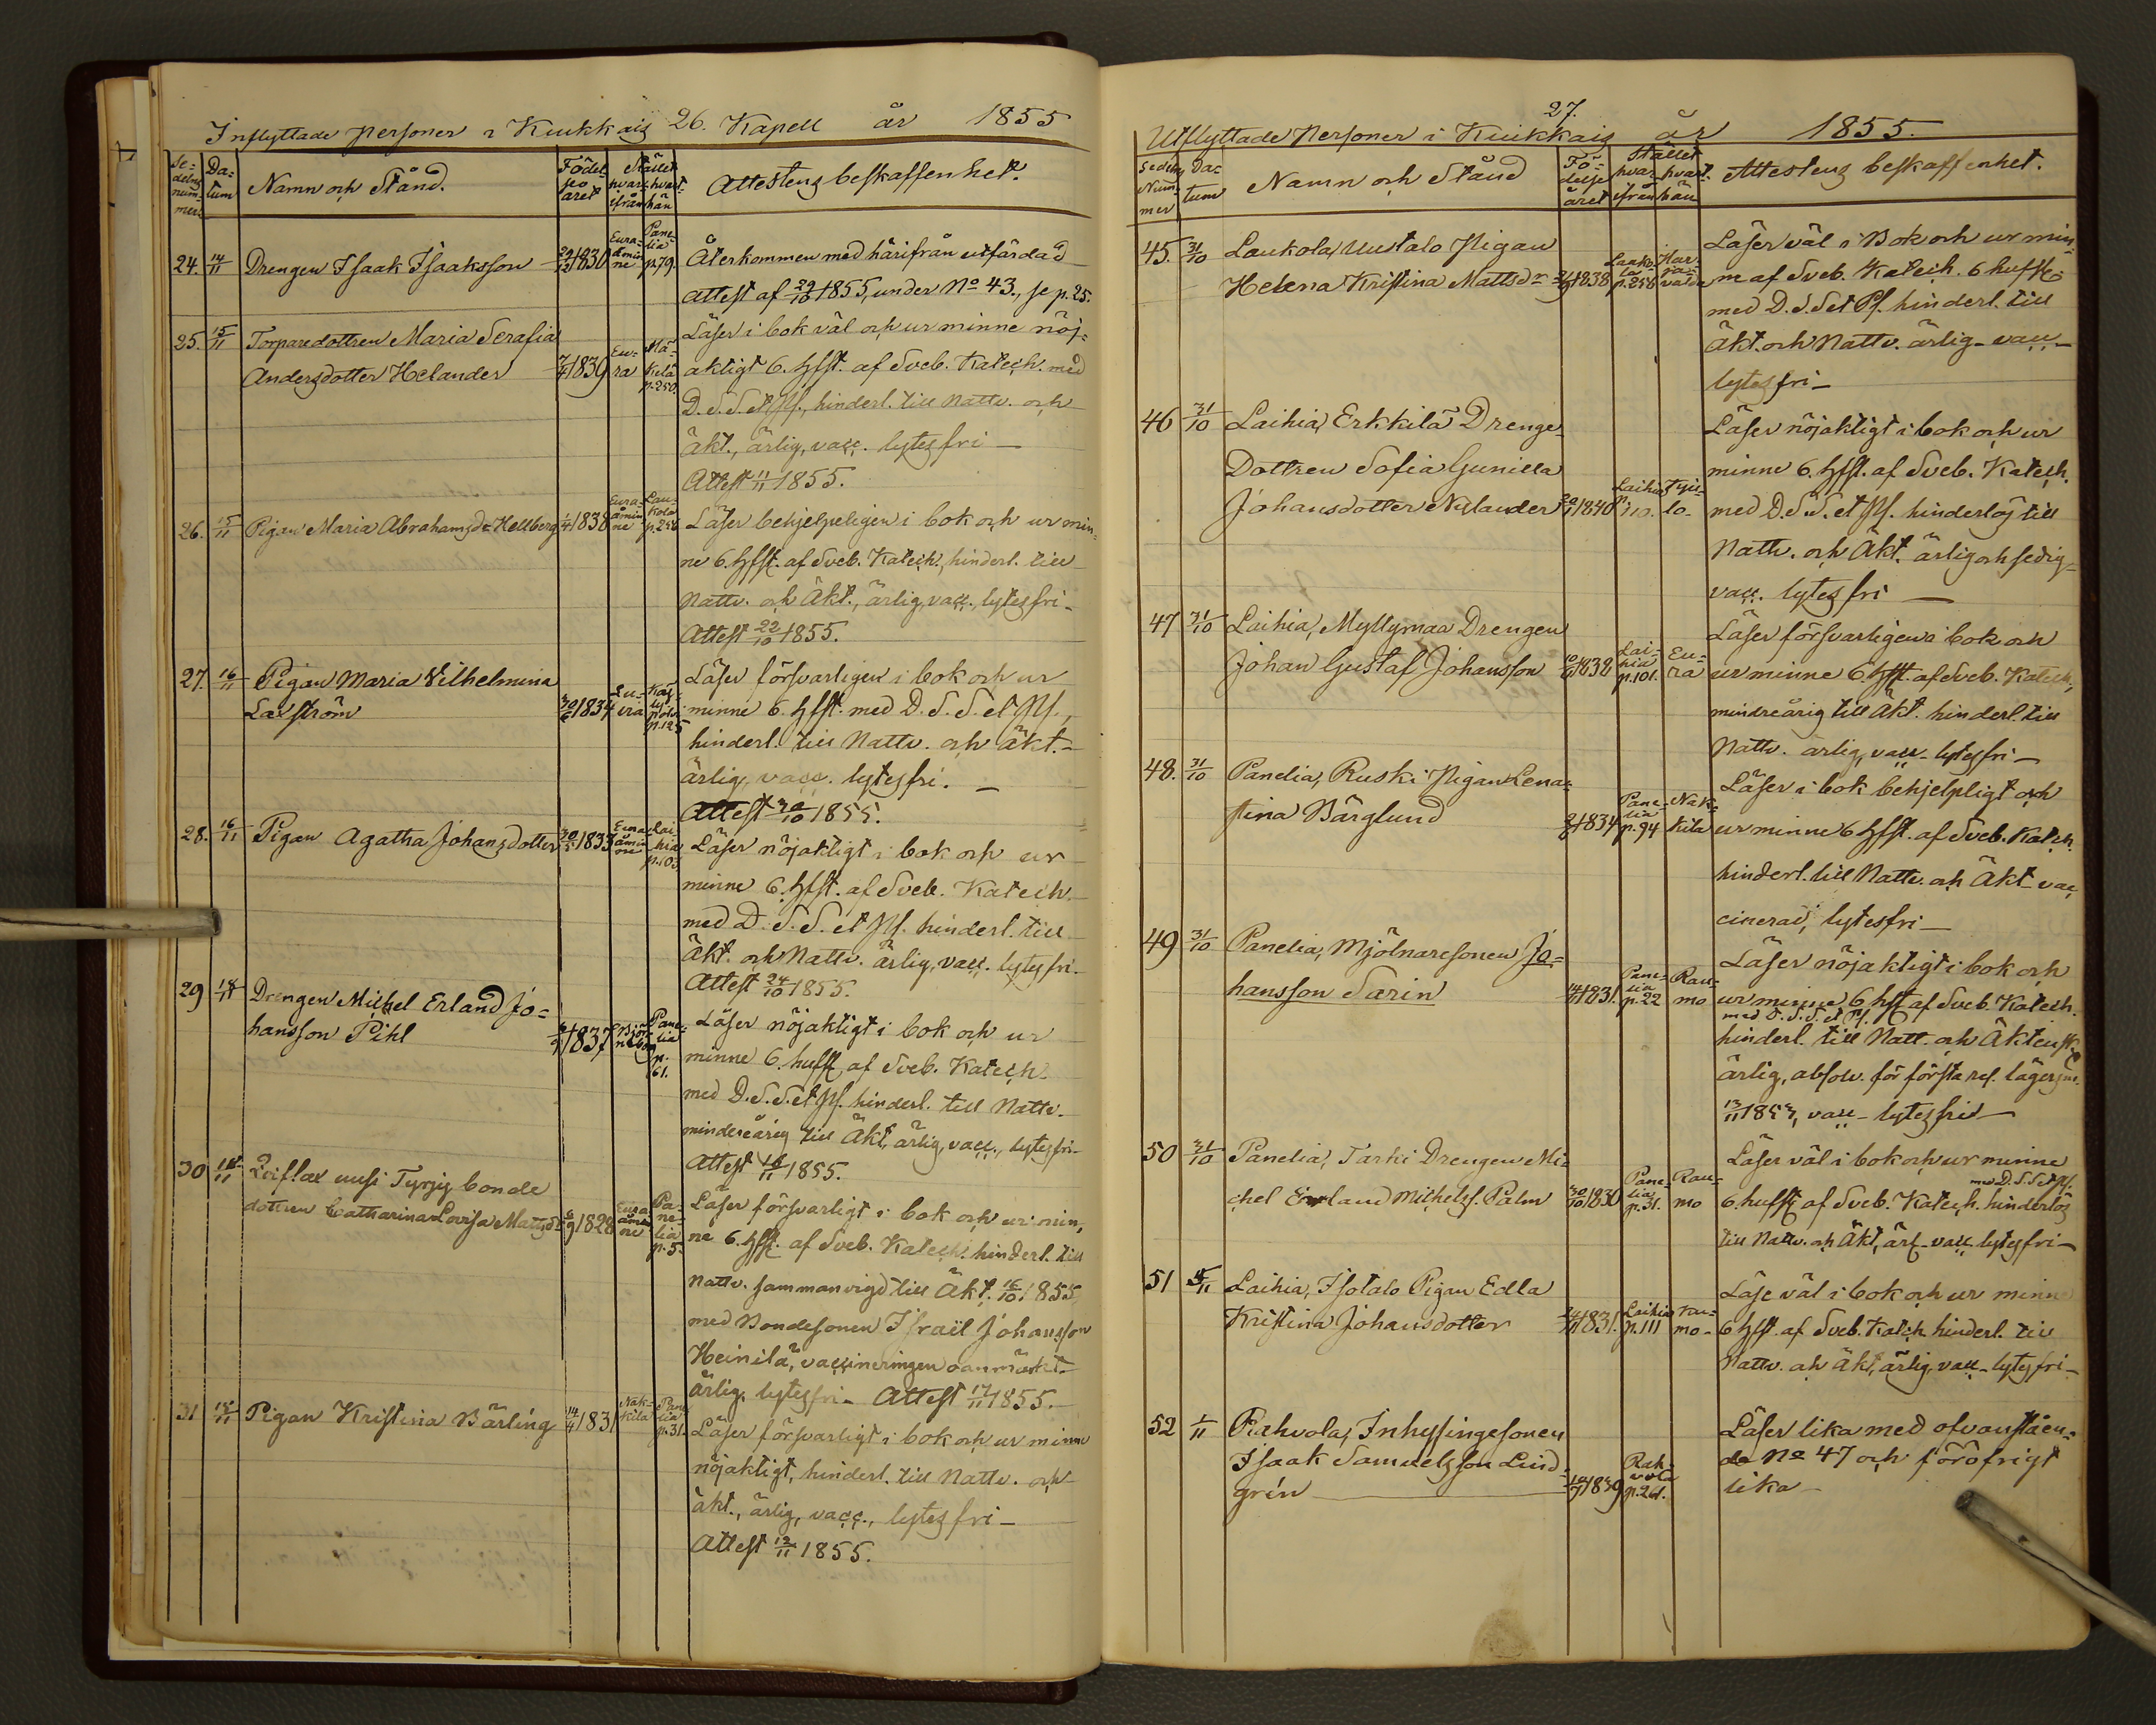 Inflyttade personer i Kiukkais 26. Kapell år 1855
Se=
delns
num=
mer
Da=
tum
Namn och Stånd.
Födel
se
året
Stället
hvar
ifrån
hvart
hän
Attestens beskaffenhet.
24. 14/11 Drengen Isaak Isaaksson 29/12 1830 Eura=
åmin
ne Pane
lia
p.79. Återkommen med härifrån utfärdad
attest af 29/10 1855, under No 43., se p. 25.
25. 15/11 Torparedottren Maria Serafia
Andersdotter Helander 7/4 1839 Eu=
ra Mä=
kelä
p.250. Läser i bok väl och ur minne nöj=
aktigt 6. Hfst. af Sveb. Katech. med
D. S. S. et Ps., hinderl. till Nattv. och
äkt., ärlig, vacc. lytesfri —
Attest 11/11 1855.
26. 15/11 Pigan Maria Abrahamsdr Hellberg 1/4 1838 Eura=
åmin
ne Lau=
kola
p.256 Läser behjelpeligen i bok och ur min=
ne 6. Hfst. af Sveb. Katech., hinderl. till
Nattv. och Äkt., ärlig, vacc., lytesfri —
Attest 22/10 1855.
27. 16/11 Pigan Maria Vilhelmina
Laxström 30/6 1834 Lu-
via p.125 Läser försvarligen i bok och ur
minne 6. Hfst. med D. S. S. et Ps.,
hinderl. till Nattv. och äkt. —
ärlig, vacc. lytesfri. —
Attest 30/10 1855.
28. 16/11 Pigan Agatha Johansdotter 30/1 1833 Eura=
åmin
ne Lai
hia
p.103 Läser nöjaktigt i bok och ur
minne 6. Hfst. af Sveb. Katech.
med D. S. S. et Ps. hinderl. till
Äkt. och Nattv. ärlig, vacc. lytesfri —
Attest 24/10 1855.
29 18/11 Drengen Michel Erland Jo=
hansson Pihl 1837 Björ
neborg Pane=
lia
p.
61. Läser nöjaktigt i bok och ur
minne 6. hufst. af Sveb. Katech.
med D. S. S. et Ps. hinderl. till Nattv.
mindreårig till Äkt. ärlig, vacc., lytesfri —
Attest 1855.
30 18/11 uusi Tyrjy bonde
dottren Catharina Lovisa Matsdr 6/9 1828 Eura
åmin
ne Pa=
ne=
lia
p.5. Läser försvarligt i bok och ur min=
ne 6. Hfst. af Sveb. Katech. hinderl. till
Nattv. sammanvigd till Äkt. 16/10 1855
med Bondesonen Israël Johansson
Heinilä, vaccineringen oanmärkt —
ärlig, lytesfri — Attest 17/11 1855.
31 15/11 Pigan Kristina Bärling 14/4 1831 Nak-
kila Pane
lia
p.31. Läser försvarligt i bok och ur minne
nöjaktigt, hinderl. till Nattv. och
äkt., ärlig, vacc., lytesfri —
Attest 12/11 1855.
27.
Utflyttade Personer i Kiukkais år 1855.
Sedelns
Num=
mer
Da=
tum
Namn och Stånd
Fö=
delse
året
Stället
hvar
ifrån
hvart
hän
Attestens beskaffenhet.
45. 31/10 Laukola, Uutalo Pigan
Helena Kristina Mattsdr 1838 Lauko
la
p.258 Har
ja=
valda Läser väl i Bok och ur min=
ne af Sveb. Katech. 6 hufst.
med D. S. S et Ps. hinderl. till
Äkt. och Nattv. ärlig — vacc —
lytesfri —
46 31/10 Laihia, Erkkilä Drenge=
Dottren Sofia Gunilla
Johansdotter Nylander 1840 Laihia
p. 110. Kju=
lo- Läser nöjaktigt i bok och ur
minne 6. Hfst. af Sveb. Katech.
med D. S. S. et Ps. hinderlös till
Nattv. och Äkt. ärlig och sedig=
vacc. lytesfri —
47 31/10 Laihia, Myllymaa Drengen
Johan Gustaf Johansson 1838 Lai=
hia
p.101. Eu=
ra Läser försvarligen i bok och
ur minne 6. Hfst. af Sveb. Katech.,
mindreårig till Äkt. hinderl. till
Nattv. ärlig, vacc — lytesfri —
48. 31/10 Panelia, Ruski Pigan Lena=
stina Bärglund 1834 Pane=
lia
p.94 Nak=
kila Läser i bok behjelpligt och
ur minne 6 Hfst. af Sveb. Katech.
hinderl. till Nattv. och Äkt. vac
cinerad, lytesfri —
49 31/10 Panelia, Mjölnaresonen Jo=
hansson Sarin 1831. Pane=
lia
p.22 Rau=
mo Läser nöjaktigt i bok och
ur minne 6 Hfst af Sveb. Katech.
med D. S. S. et Ps.
hinderl. till Natt. och Äktensk.
ärlig, absolv. för första res.
13/11 1853, vacc — lytesfri —
50 31/10 Panelia, Tarki Drengen Mi=
chel Erland Michelss. Palm 30/10 1830 Pane=
lia
p.31. Rau=
mo Läser väl i bok och ur minne
med D. S. S et Ps.
6 hufst af Sveb. Katech. hinderlös
till Nattv. och Äkt, ärl — vacc lytesfri —
51 Laihia, Isotalo Pigan Edla
Kristina Johansdotter 1831. Laihia
p.111 Rau=
mo- Läse väl i bok och ur minne
6 Hfst. af Sveb. Katech. hinderl. till
Nattv. och Äkt, ärlig, vacc — lytesfri —
52 1/11 Rahvola, Inhysingesonen
Isaak Samuelsson Lind=
grén 1839 Rah=
vola
p.261. Läser lika med ofvanståen=
de No 47 och föröfrigt
lika —